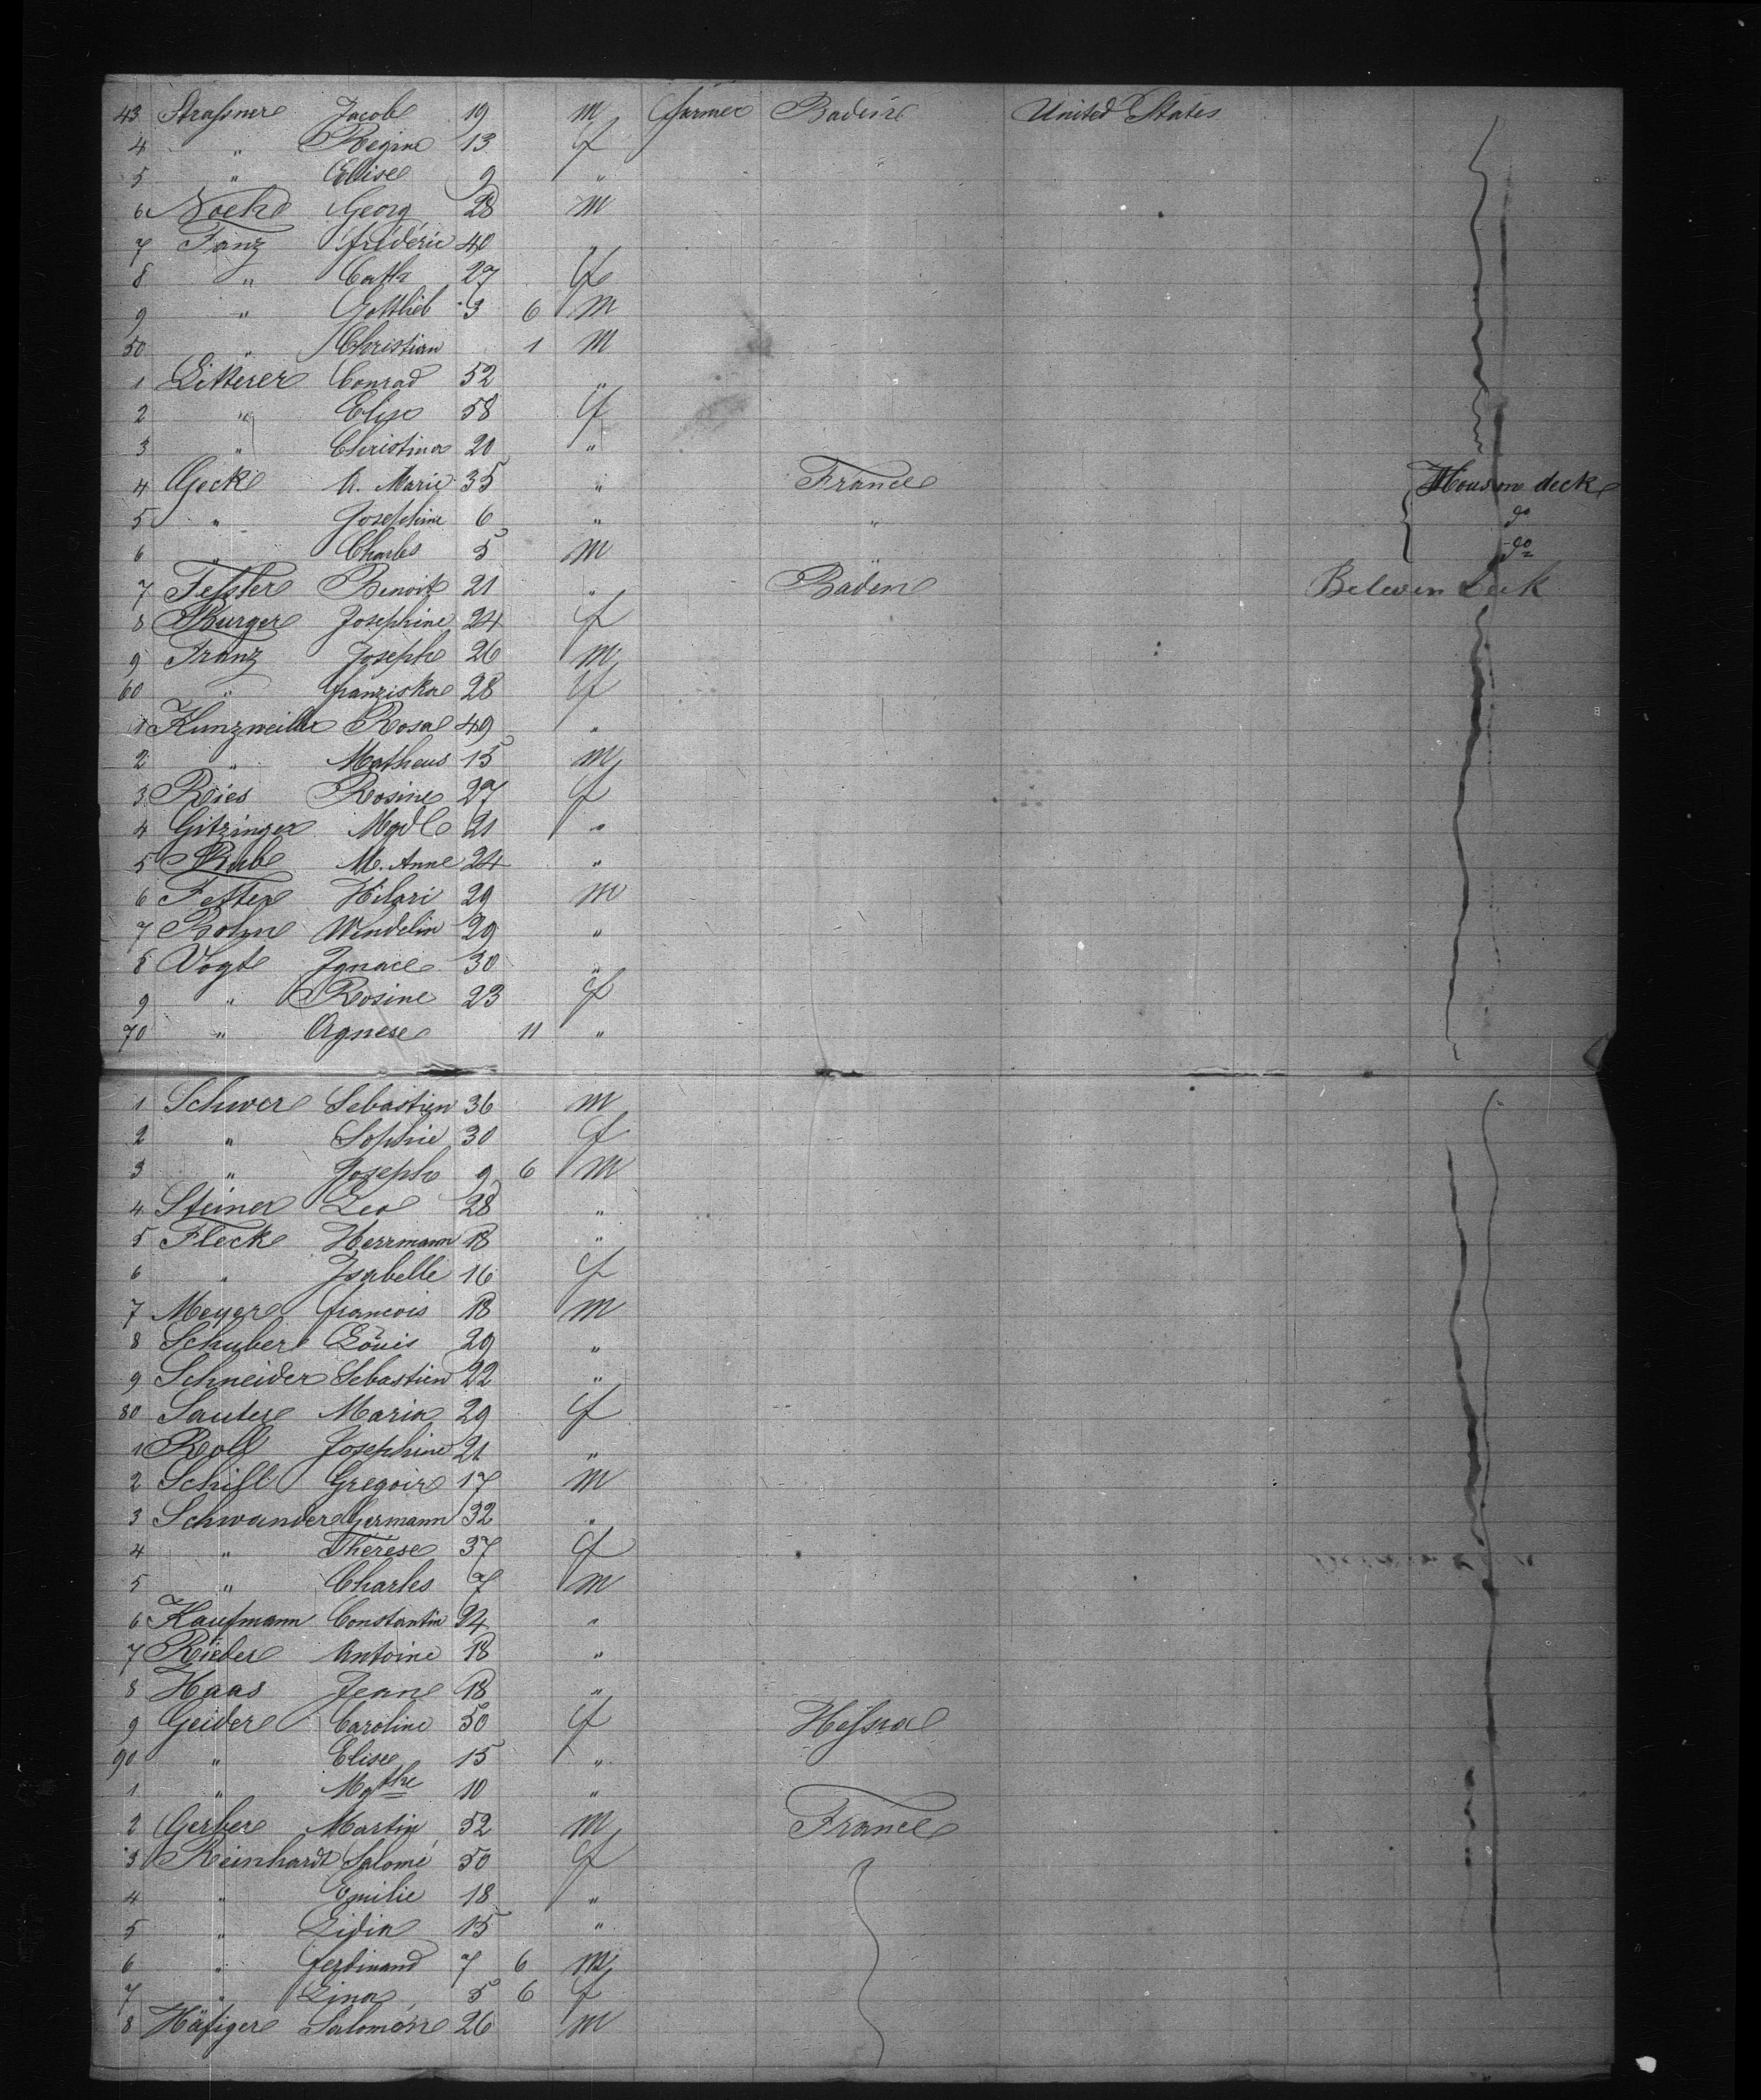 43 Straßner Jacob 19 m farmer Baden United States
4 " Regine 13 f
5 " Elise 9 "
6 Noeh Georg 28 m
7 Tanz fréderic 40 "
8 " Cath 27 f
9 " Gottlieb 3 6 m
50 " Christian 1 m
1 Litterer Conrad 52 "
2 " Elise 58 f
3 " Christina 20 "
4 Geck A. Marie 35 " France House on deck
5 " Josephine 6 " " do
6 " Charles 5 m do
7 Feßler Benoit 21 " Baden Between Deck
8 Burger Josephine 24 f
9 Franz Joseph 26 m
60 " franziska 28 f
1 Kunzweiler Rosa 49 "
2 " Matheus 15 m
3 Ries Rosine 27 f
4 Gitzinger Magd 21 "
5 Bub M. Anne 24 "
6 Fetter Hilari 29 m
7 Bohn Wendelin 29 "
8 Vogt Ignace 30 "
9 " Rosine 23 f
70 " Agnese 11 "
1 Schwer Sebastien 36 m
2 " Sophie 30 f
3 " Joseph 9 6 m
4 Steiner Leo 28 "
5 Fleck Herrmann 18 "
6 " Isabelle 16 f
7 Meyer francois 18 m
8 Schuber Louis 29 "
9 Schneider Sebastien 22 "
80 Sauter Maria 29 f
1 Roll Josephine 21 "
2 Schill Gregoire 17 m
3 Schwander Germann 32 "
4 " Thérese 37 f
5 " Charles 7 m
6 Kaufmann Constantin 24 "
7 Rieder Antoine 18 "
8 Haas Jean 18 "
9 Geider Caroline 50 f Heßna
90 " Elise 15 "
1 " Mathe 10 "
2 Gerber Martin 52 m France
3 Reinhardt Salomé 50 f
4 " Emilie 18 "
5 " Lidia 15 "
6 " ferdinand 7 6 m
7 " Lina 5 6 f
8 Häfiger Salomon 26 m